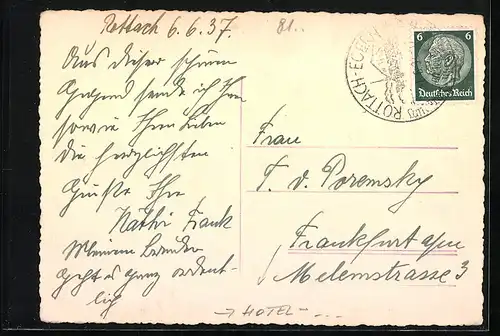 Rottach 6.6.37.
81..
Aus dieser schönen
Gegend sende ich Ihnen
sowie Ihren Lieben
die herzlichsten
Grüße Ihre
Käthi Frank
Meinem Bruder
geht es ganz ordent-
lich
ROTTACH-EGERN
6 6
Deutsches Reich
Frau
T. v. Poremsky
Frankfurt a/m
Melemstrasse 3
→ HOTEL -